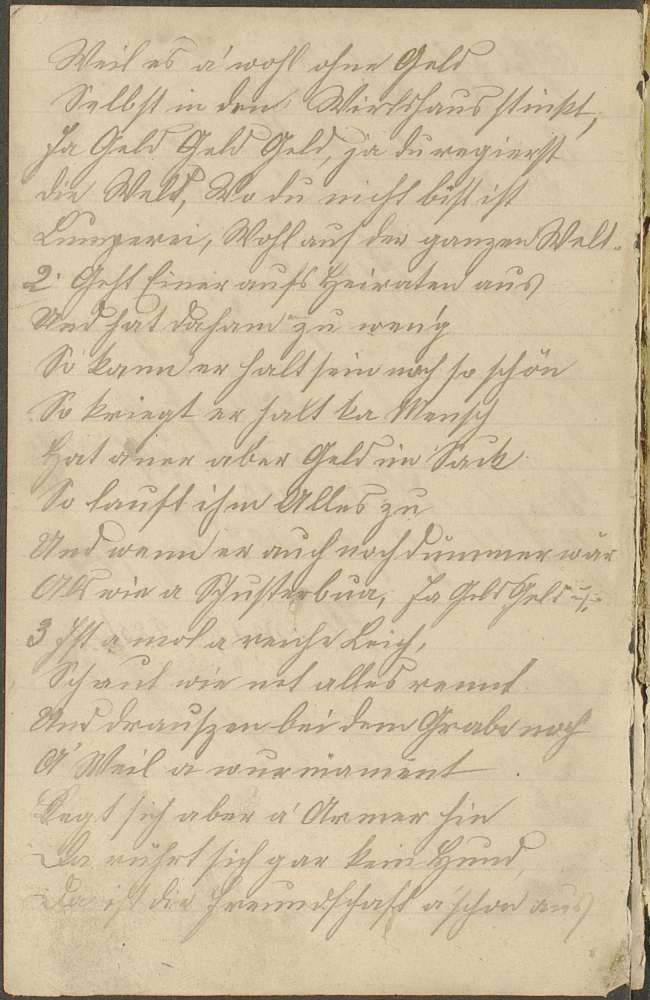 Weil es a' wohl ohne Geld
Selbst in den Wirtshaus stinkt,
Ja Geld Geld Geld, ja du regierst
die Weld, Wo du nicht bist ist
Lumperei, Wohl auf der ganzen Welt.
2. Geht Einer aufs Heiraten aus
Und hat daham zu wen'g
So kann er halt sein noch so schön
So kriegt er halt ka Mensch
Hat aner aber Geld im Sack
So lauft ihm Alles zu
Und wenn er auch noch dümmer wär
Als wie a Schusterbua, Ja Geld Geld
3 Ist a mol a reiche Leich,
Schaut wie net alles rennt
Und drauszen bei dem Grabe noch
A' Weil a
Legt sich aber a' Armer hin
Da rührt sich gar kein Hund,
Da ist die Freundschaft a' schon aus